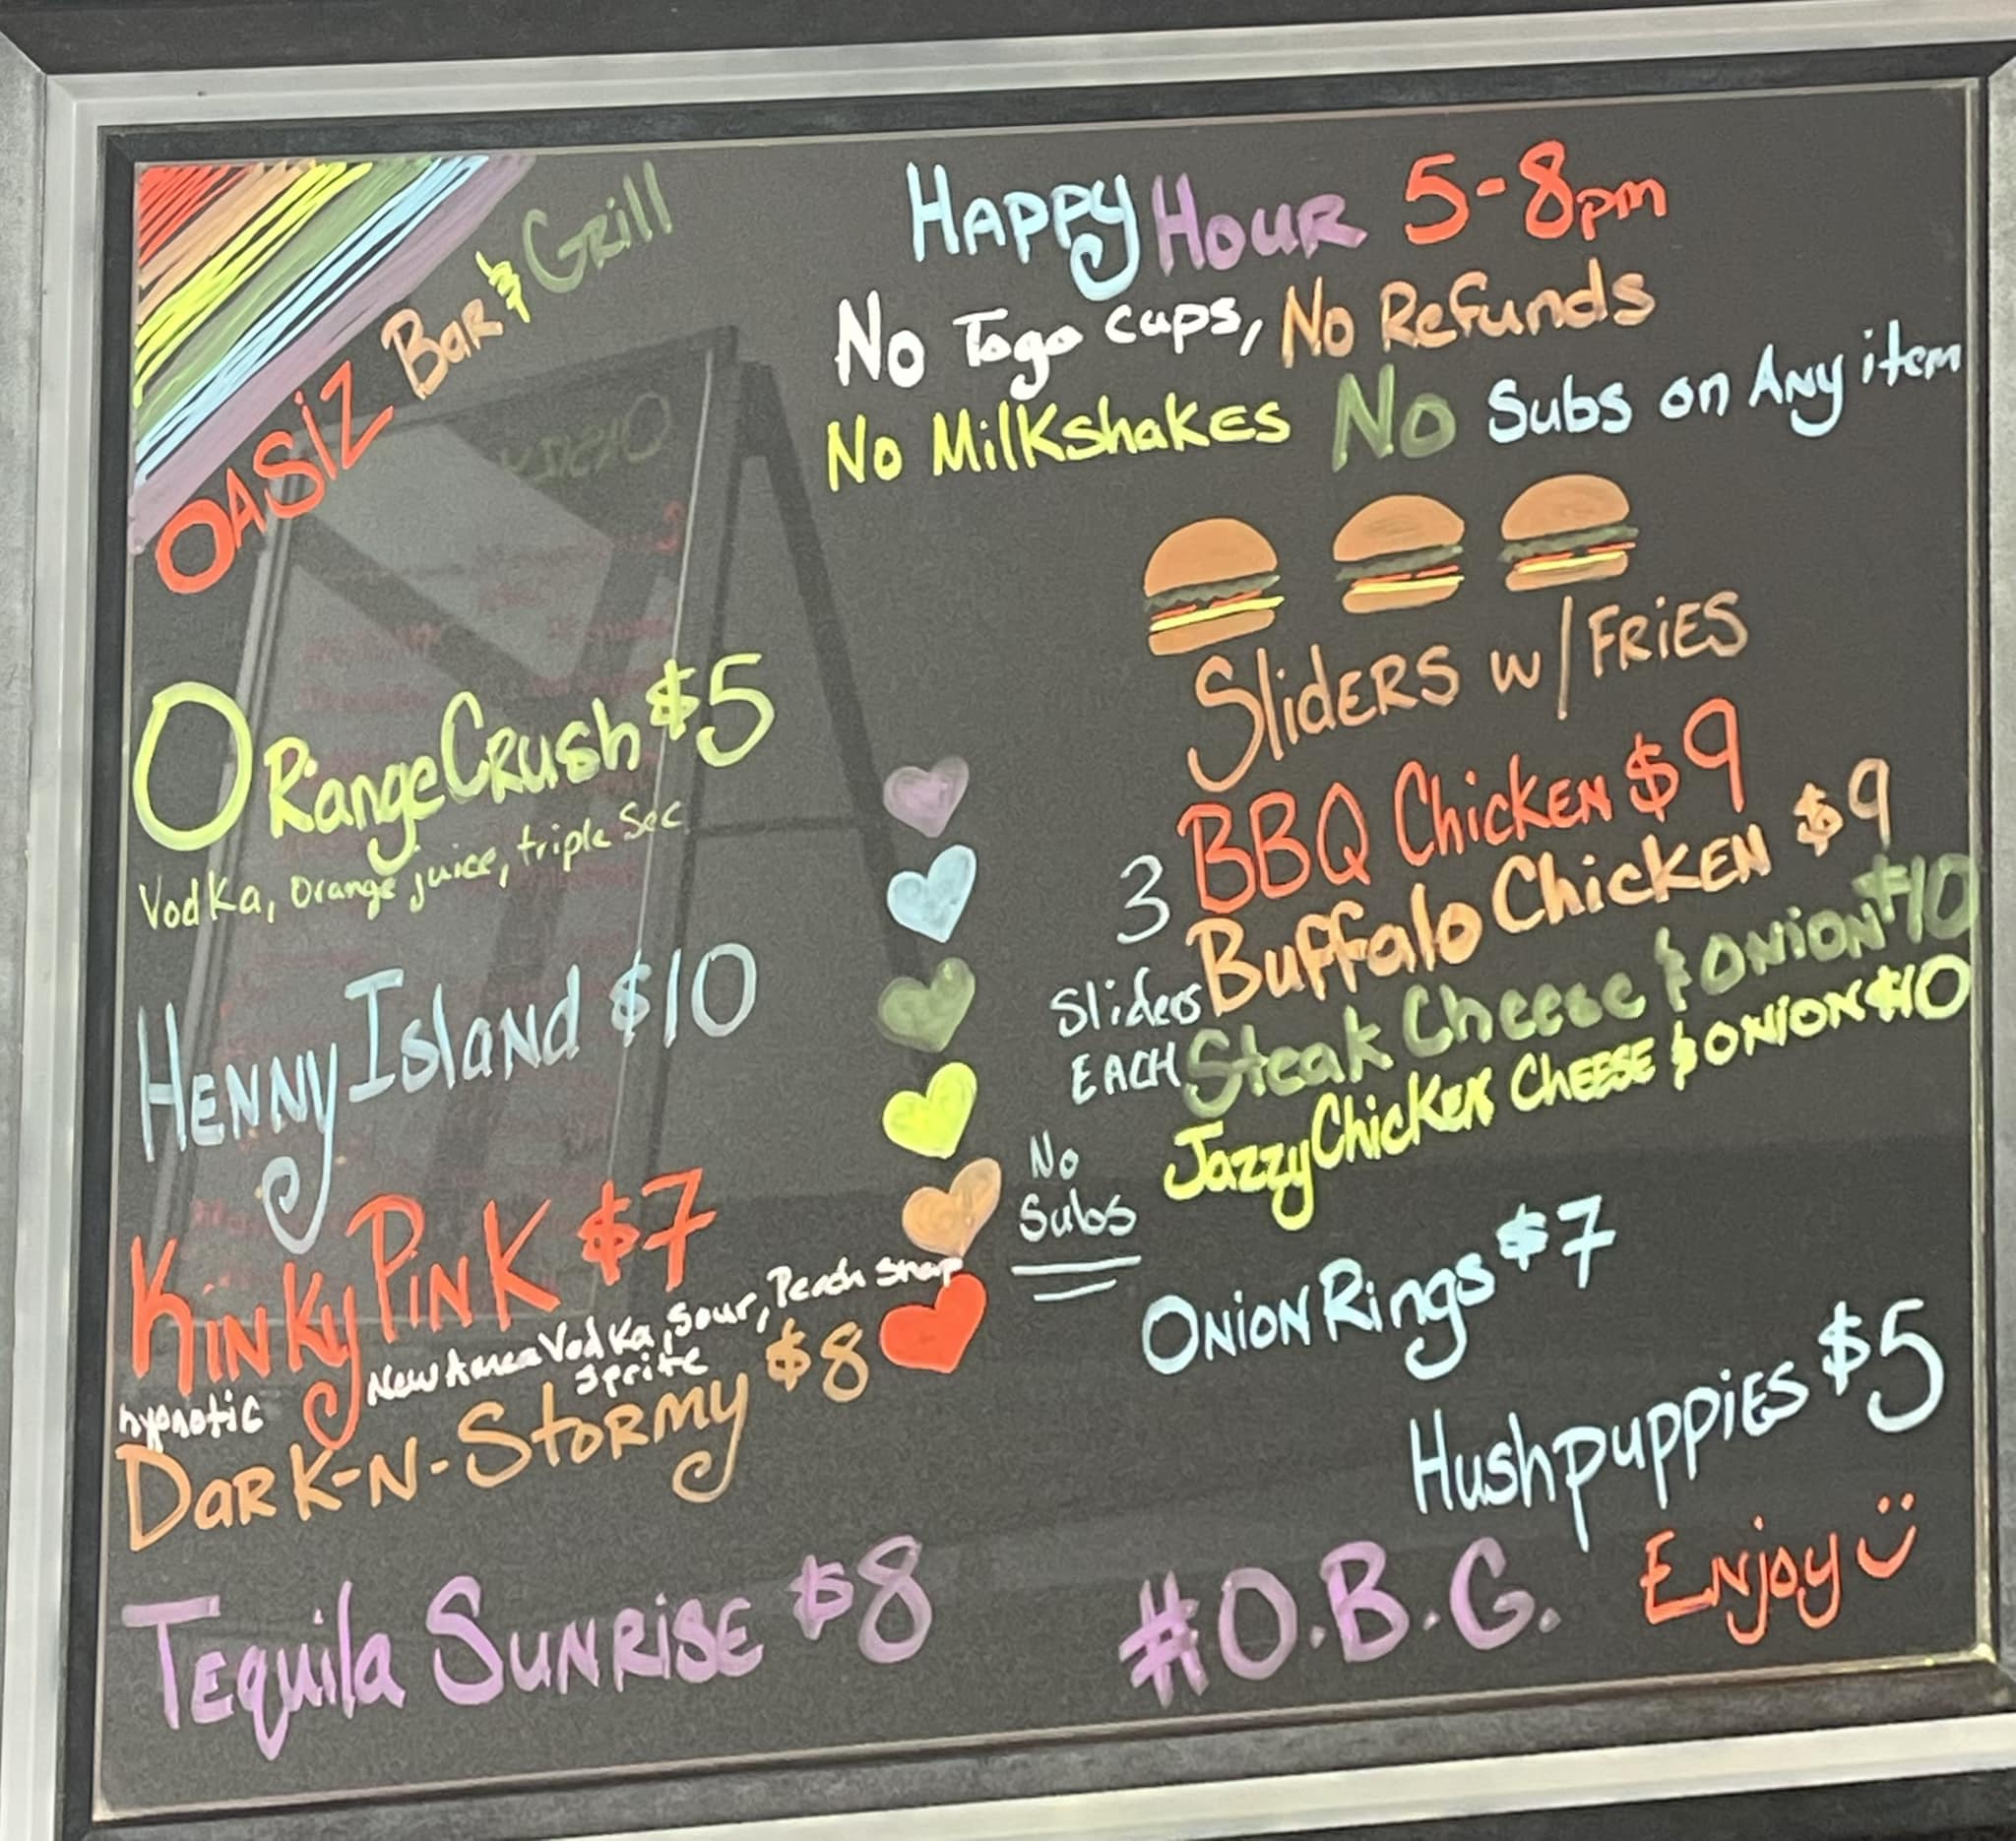 OASIZ Bar & Grill
Happy Hour 5-8pm
No Togo cups, No Refunds
No Milkshakes No Subs on Any item
Orange Crush $5
Vodka, Orange juice, triple Sec
Henny Island $10
Kinky Pink $7
hypnotic New Vodka, Sour, Peach Snap
Sprite
Dark-N-Stormy $8
Tequila Sunrise $8
Sliders w/ Fries
3 Sliders EACH
BBQ Chicken $9
Buffalo Chicken $9
Steak Cheese & Onion $10
Jazzy Chicken Cheese & Onion $10
No
Subs
Onion Rings $7
Hushpuppies $5
#O.B.G. Enjoy